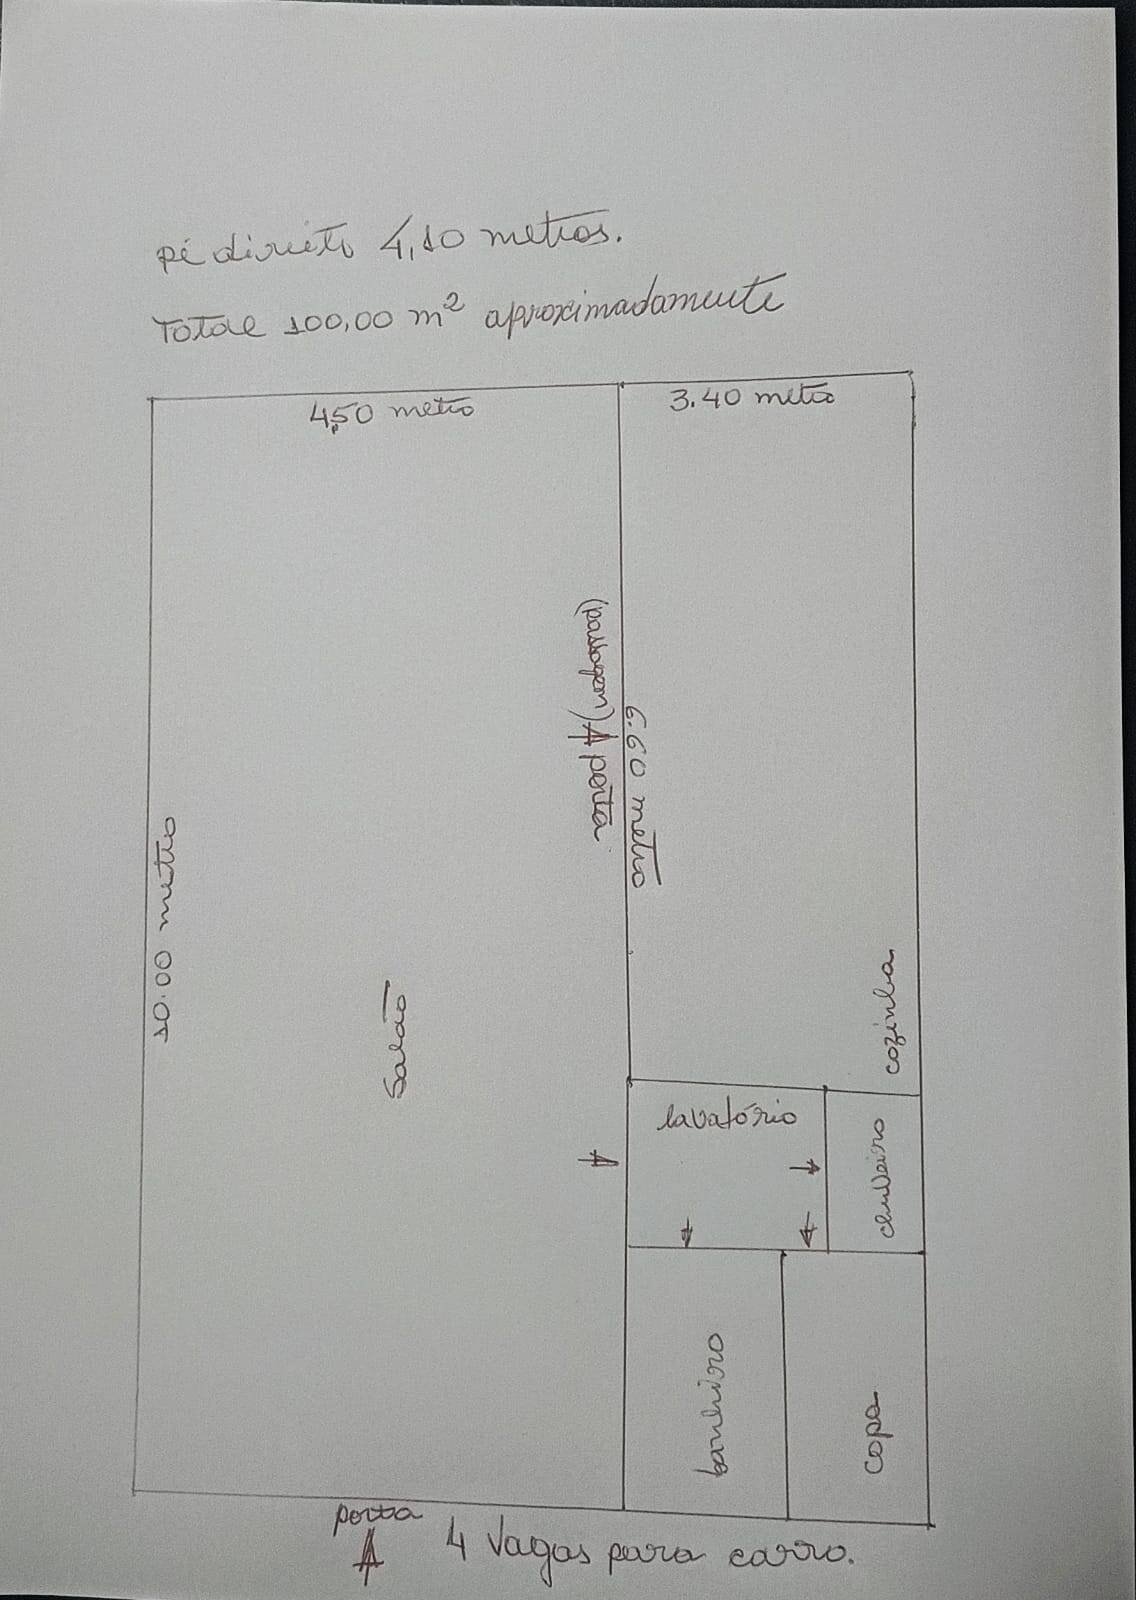 pé direito 4,10 metros.
Total 100,00 m² aproximadamente
4,50 metro
3.40 metro
(passagem) porta
6.60 metro
10.00 metro
Salão
cozinha
lavatório
chuveiro
banheiro
copa
porta
4 Vagas para carro.